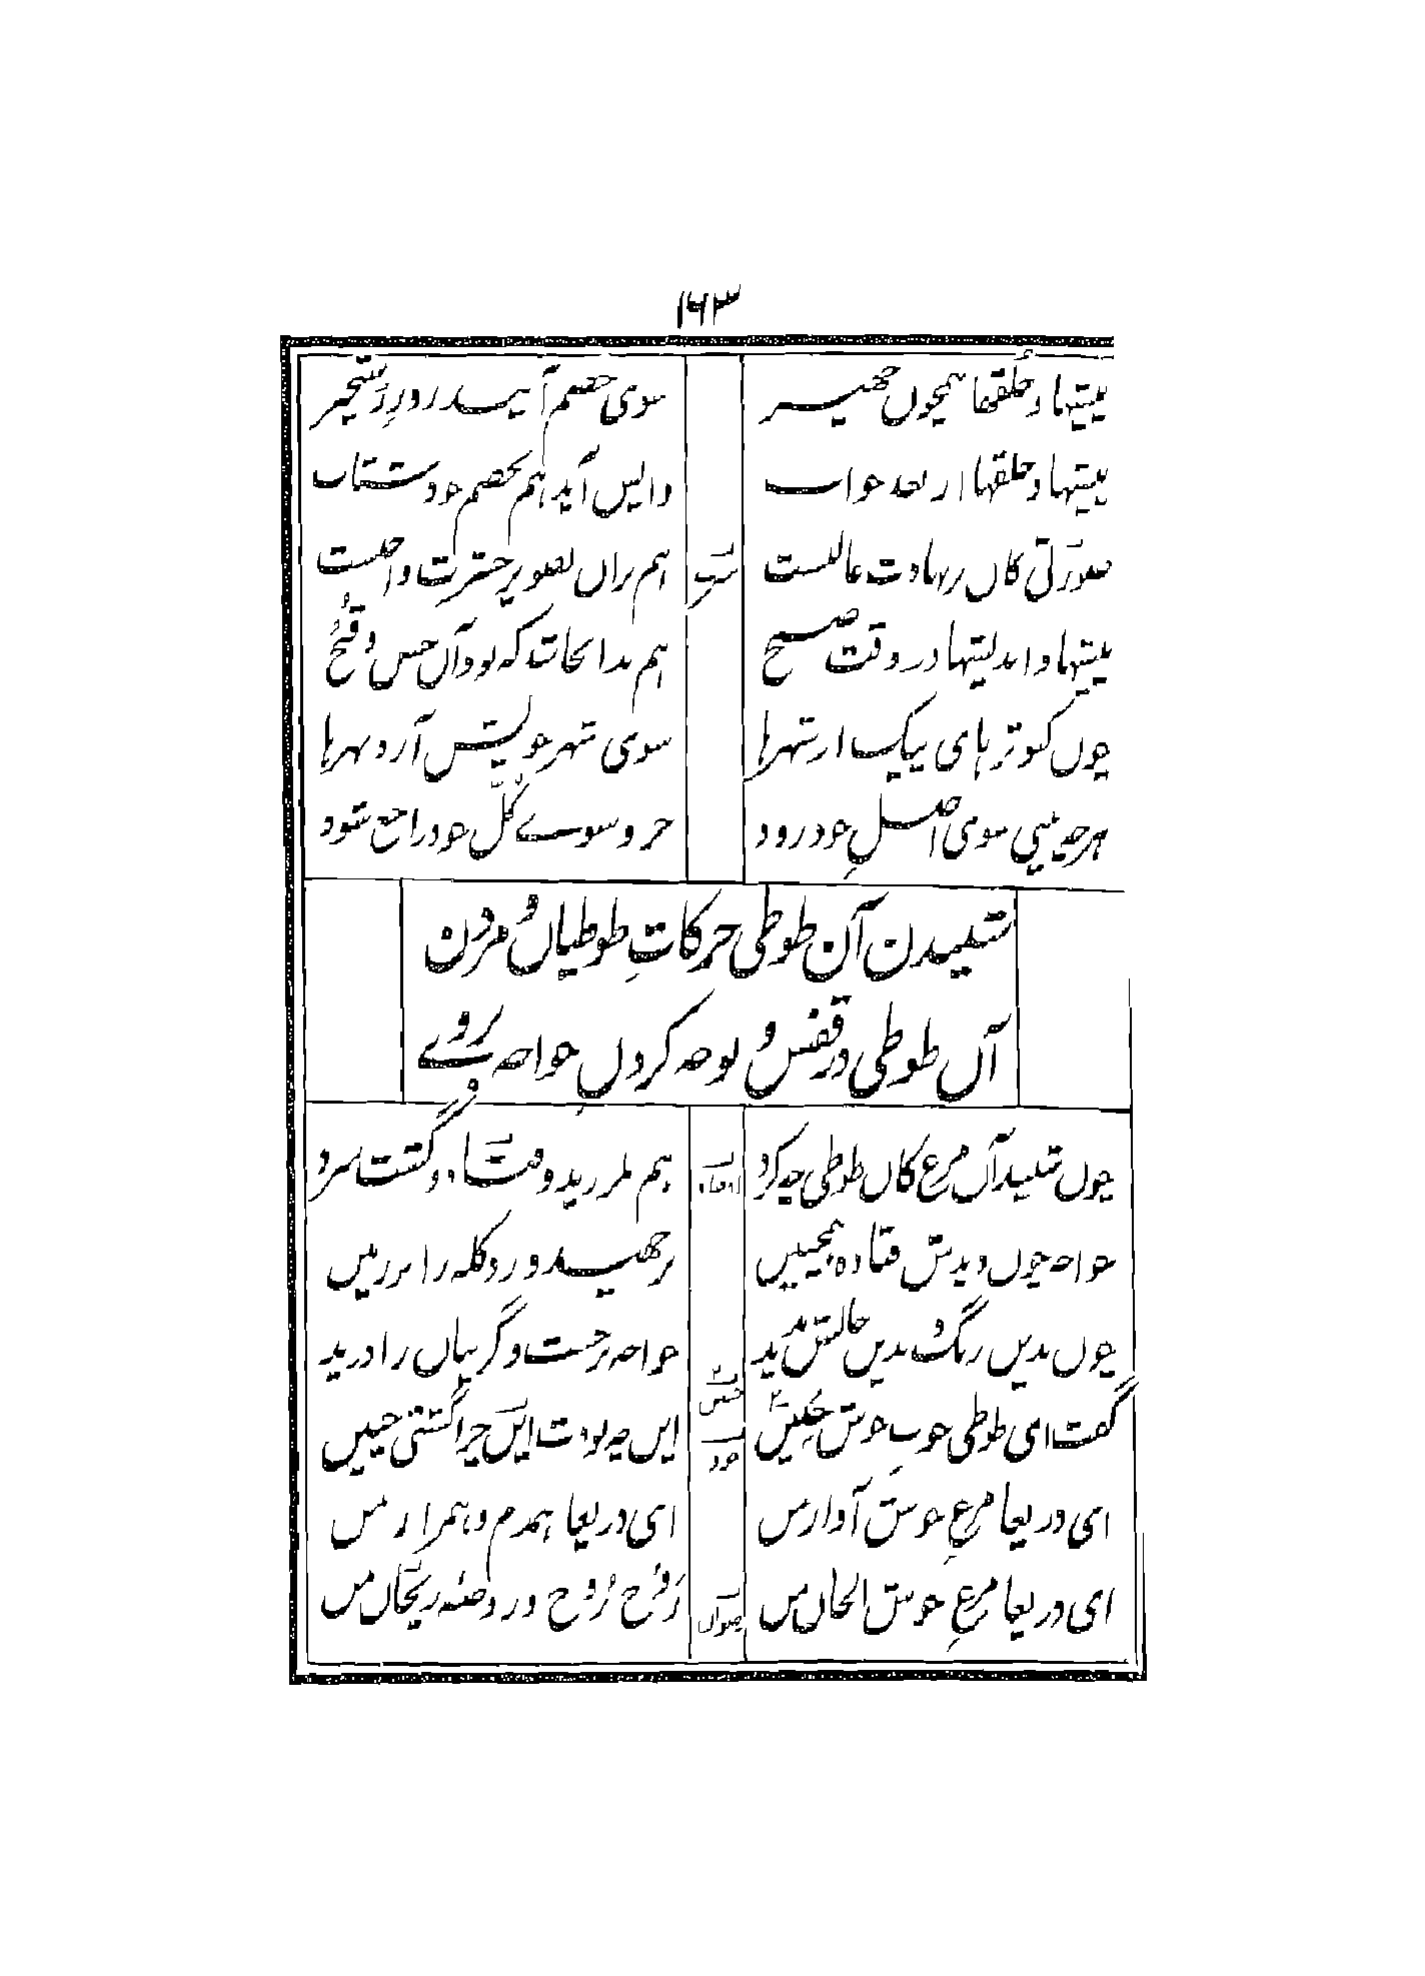 ۱۶۳
پیشها و خُلقها همچوں جهیز
سوی خصم آیند روزِ رستخیز
پیشها و خلقها از بعد خواب
واپس آید هم بخصم خود شتاب
صورتی کاں بر نهادت غالبست
هم براں تصویر حشرت واجبست
پیشها و اندیشها در وقت صبح
هم بدانجا شد که بود آں حسن و قُبح
چوں کبوترهای پیک از شهرها
سوی شهر خویش آرد بهرها
هرچه بینی سوی اصلِ خود رود
جزو سوے کُلِّ خود راجع شود
شنیدن آن طوطی حرکاتِ طوطیاں و مردن
آں طوطی در قفس و نوحه کردں خواجه بروے
چوں شنید آں مرغ کاں طوطی چه کرد
هم بلرزید و فتاد و گشت سرد
خواجه چوں دیدش فتاده همچنیں
برجهید و زد کله را بر زمیں
چوں بدیں رنگ و بدیں حالش بدید
خواجه برجست و گریباں را درید
گفت ای طوطی خوبِ خوش حنیں
ایں چه بودت ایں چرا گشتی چنیں
ای دریغا مرغِ خوش آواز من
ای دریغا همدم و همراز من
ای دریغا مرغِ خوش الحان من
رَوحِ رُوح و روضه ریحان من